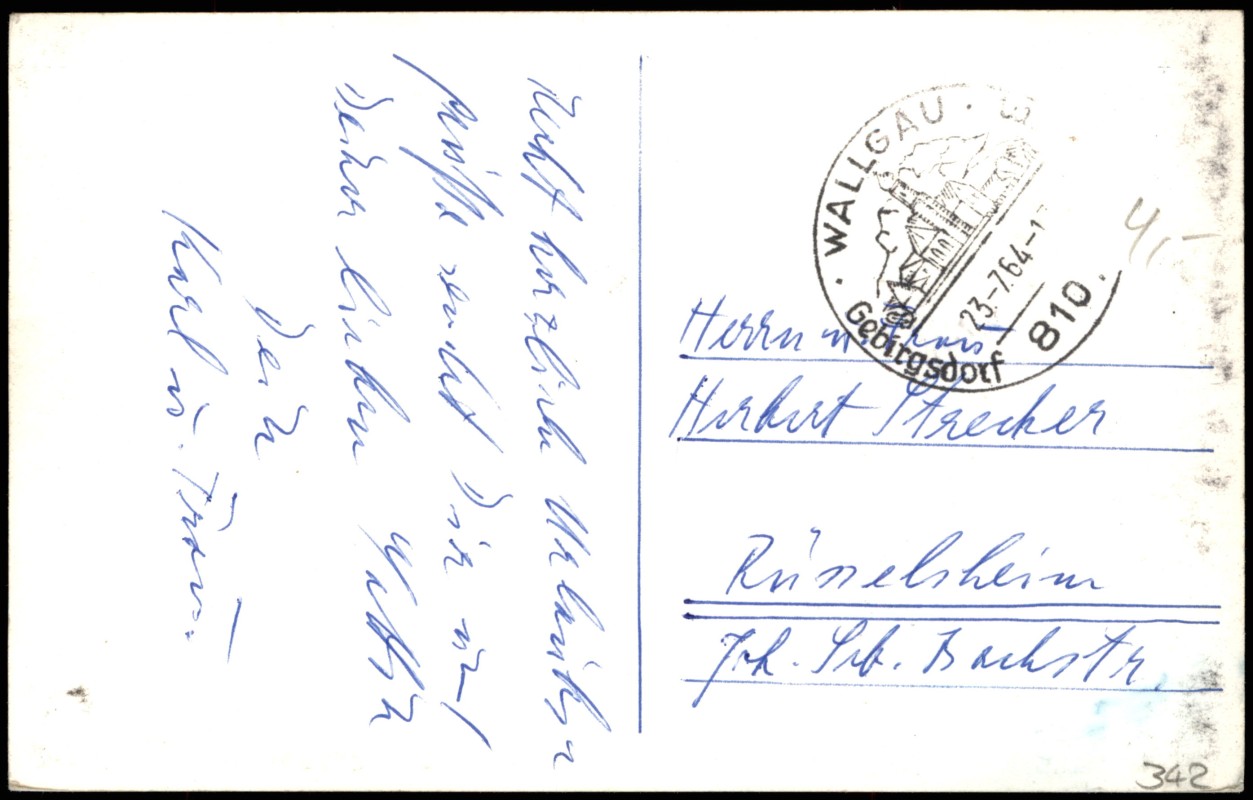 Recht herzliche Urlaubs
grüße sendet Dir und
Deiner lieben Gattin
Dein
Karl u. Frau.
· WALLGAU ·
23.-7.64-1
810
Gebirgsdorf
4,-
Herrn u. Frau
Herbert Strecker
Rüsselsheim
Joh. Seb. Bachstr.
342